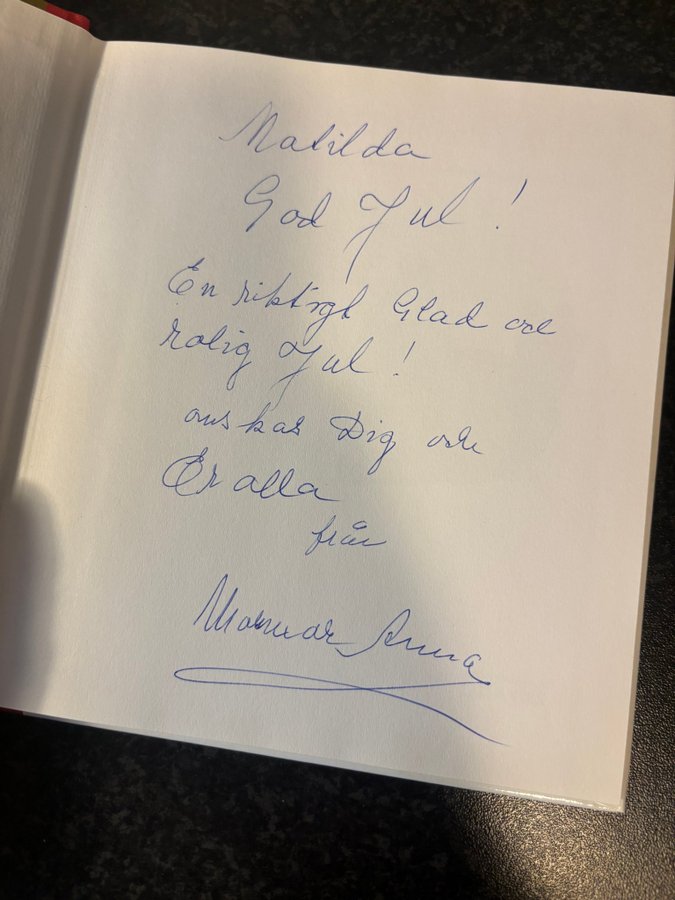 Matilda
God Jul!
En riktigt Glad och
rolig Jul!
onskas Dig och
Er alla
från
Mormor Anna